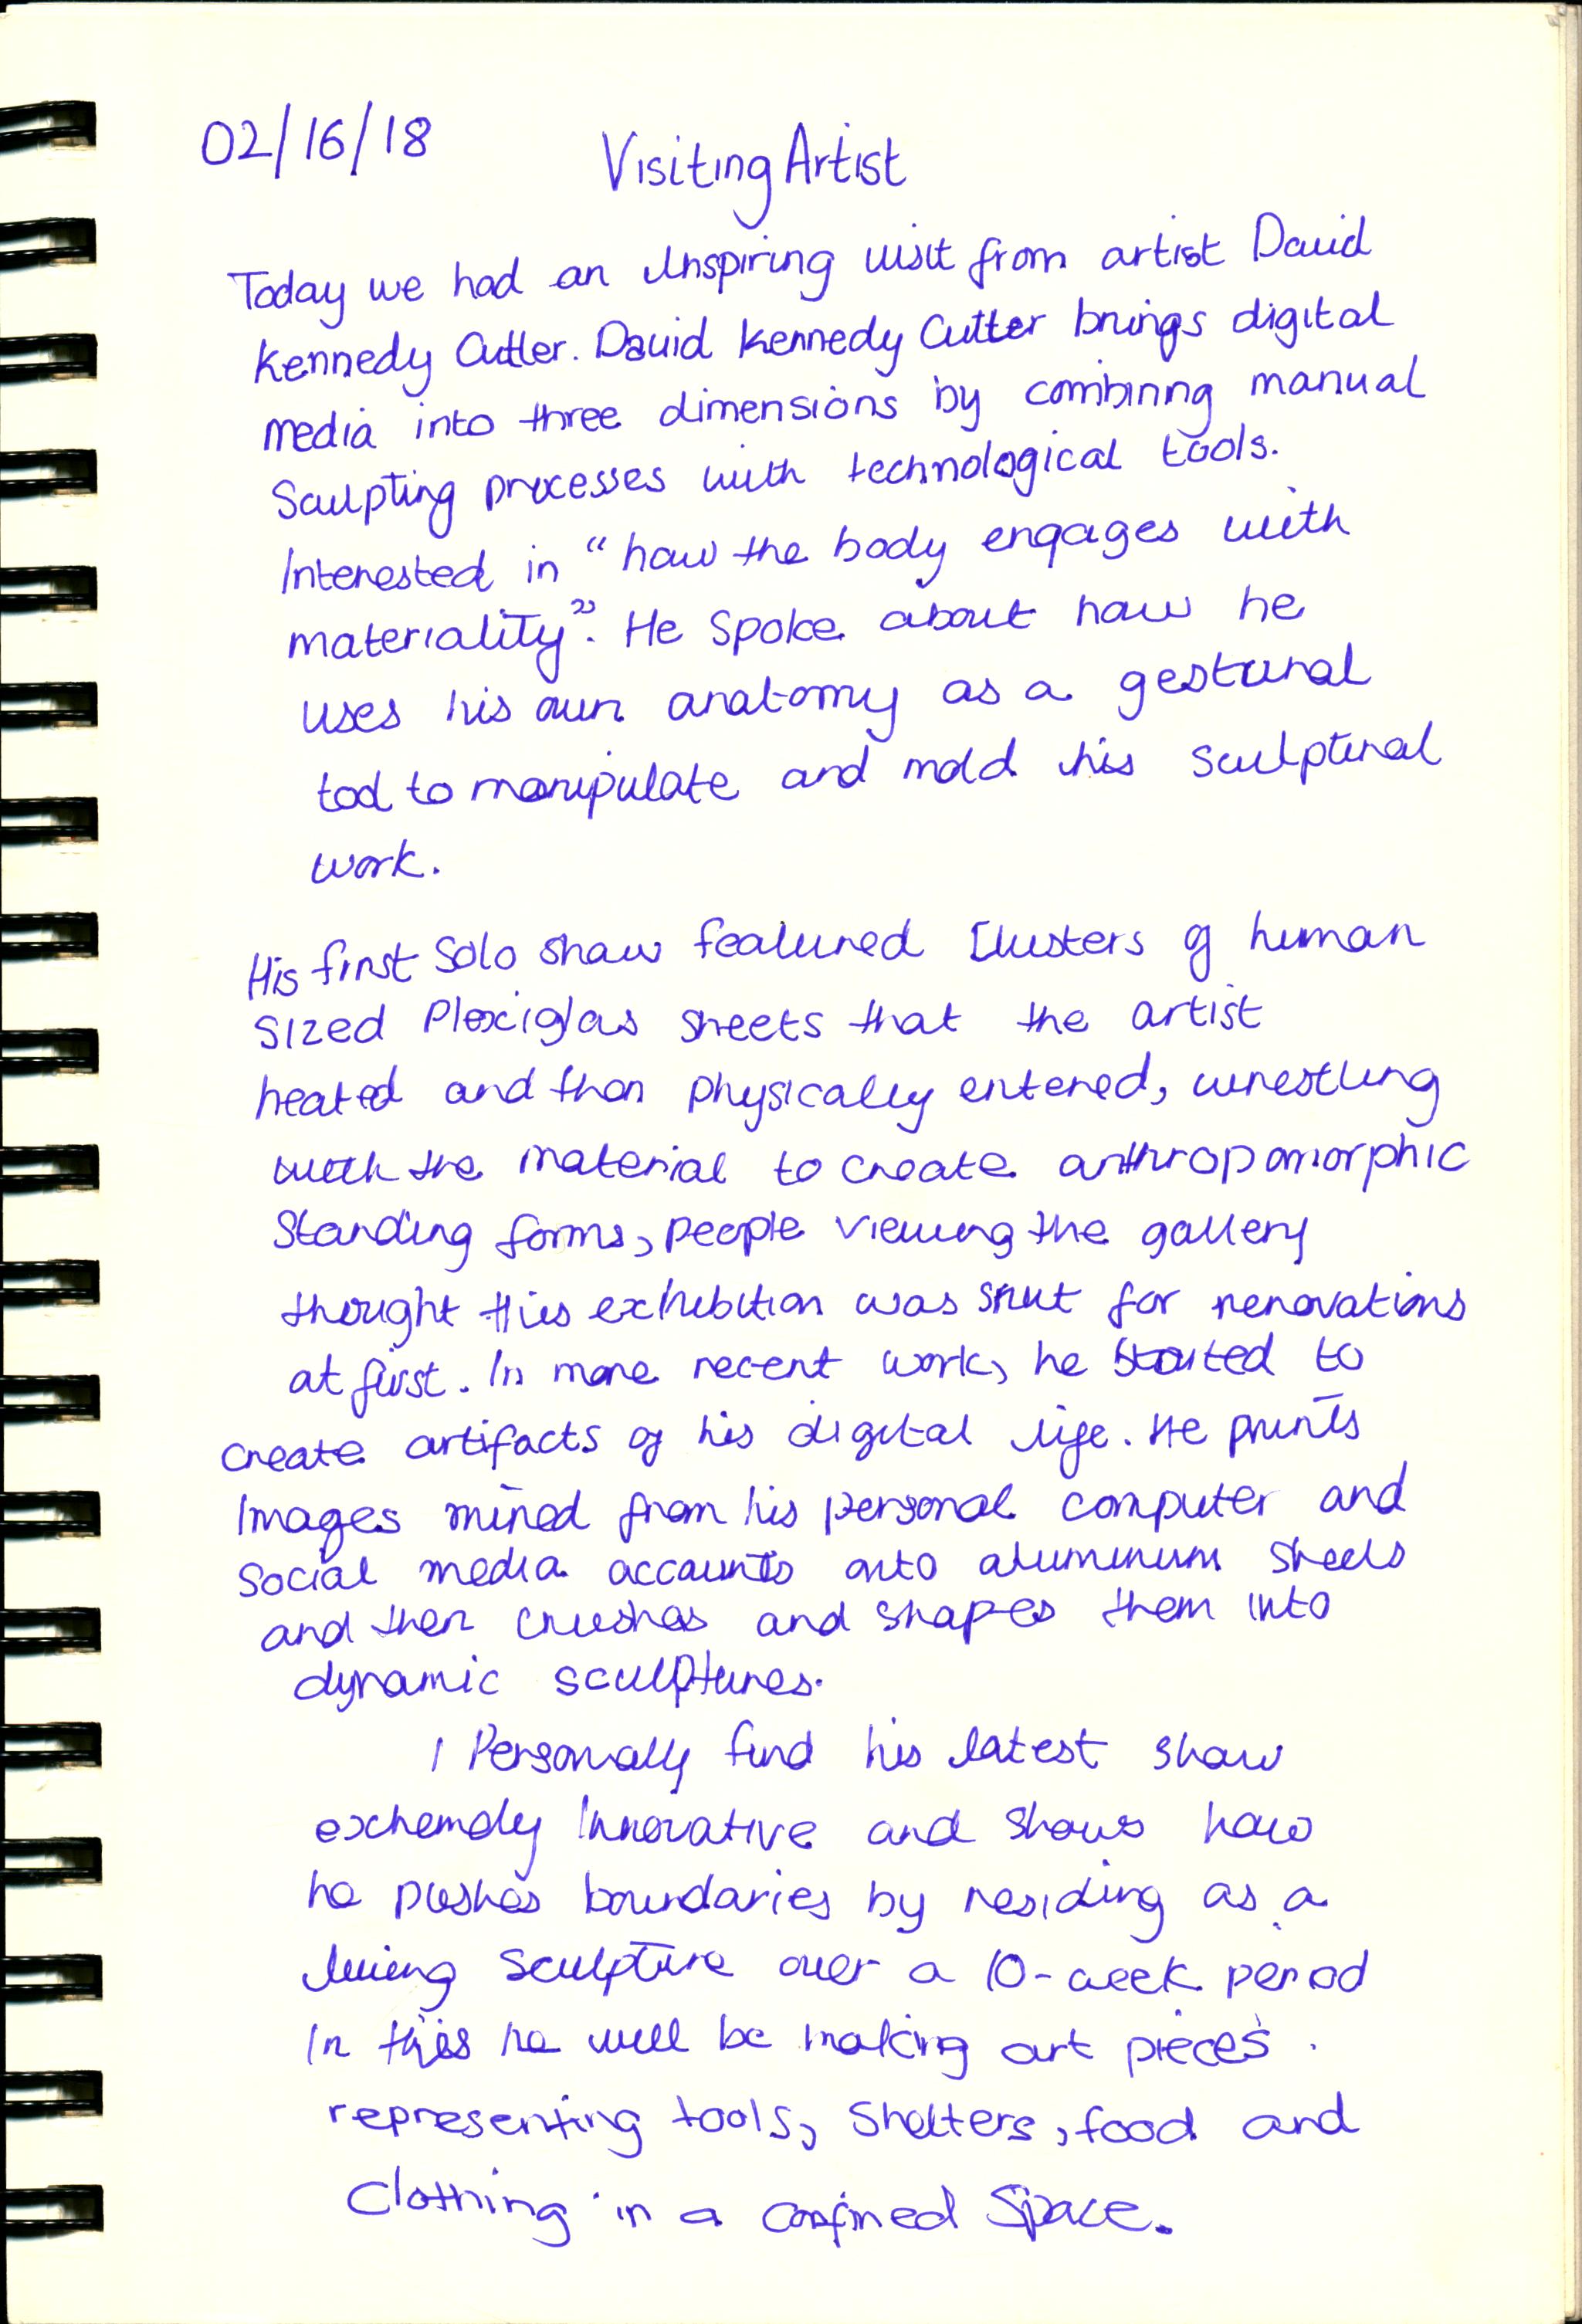 02/16/18
Visiting Artist
Today we had an Inspiring visit from artist David
Kennedy Cutler. David Kennedy Cutter brings digital
media into three dimensions by combining manual
Sculpting processes with technological tools.
Interested in "how the body engages with
materiality". He Spoke about how he
uses his own anatomy as a gestural
tool to manipulate and mold his sculptural
work.
His first Solo show featured Clusters of human
sized Plexiglas sheets that the artist
heated and then physically entered, wrestling
with the material to create anthropomorphic
Standing forms, people viewing the gallery
thought this exhibition was shut for renovations
at first. In more recent work, he started to
create artifacts of his digital life. He prints
Images mined from his personal computer and
social media accounts onto aluminum sheets
and then crushes and shapes them into
dynamic sculptures.
I Personally find his latest show
extremely Innovative and shows how
he pushes boundaries by residing as a
living sculpture over a 10-week period
In this he will be making art pieces.
representing tools, Shelters, food and
Clothing in a confined Space.